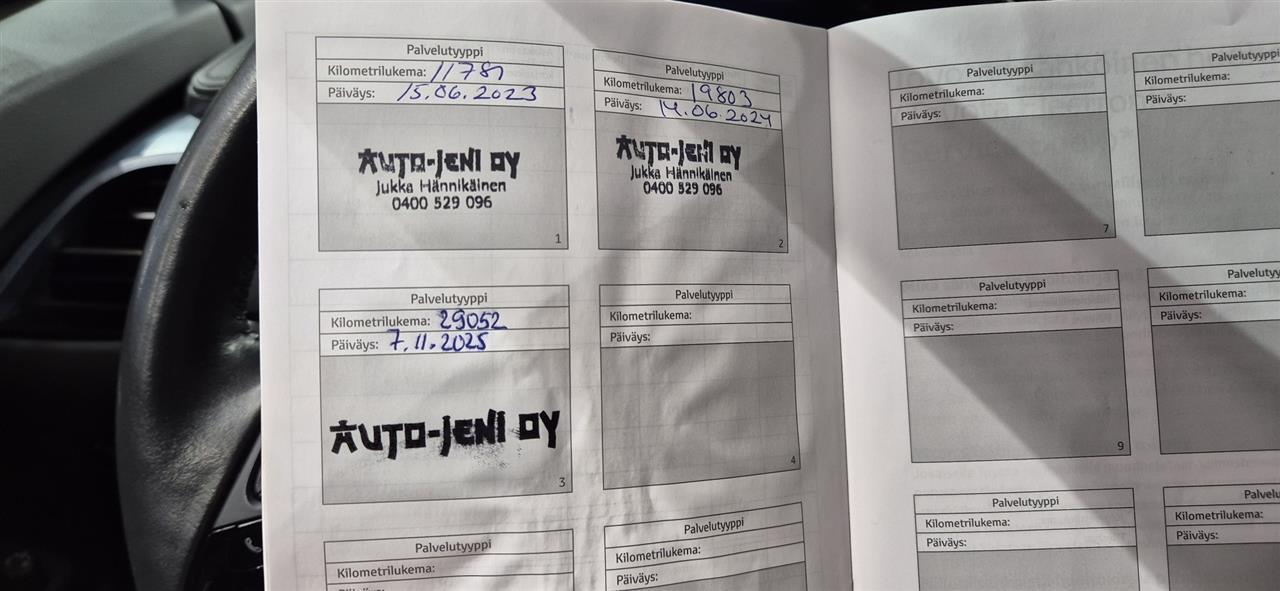 Palvelutyyppi
Kilometrilukema: 11781
Päiväys: 15.06.2023
AUTO-JENI OY
Jukka Hännikäinen
0400 529 096
1
Palvelutyyppi
Kilometrilukema: 19803
Päiväys: 14.06.2024
AUTO-JENI OY
Jukka Hännikäinen
0400 529 096
2
Palvelutyyppi
Kilometrilukema: 29052
Päiväys: 7.11.2025
AUTO-JENI OY
3
Palvelutyyppi
Kilometrilukema:
Päiväys:
4
Palvelutyyppi
Kilometrilukema:
Palvelutyyppi
Kilometrilukema:
Päiväys:
Palvelutyyppi
Kilometrilukema:
Päiväys:
7
Palvelutyyppi
Kilometrilukema:
Päiväys:
Palvelutyyppi
Kilometrilukema:
Päiväys:
9
Kilometrilukema:
Päiväys:
Palvelutyyppi
Kilometrilukema:
Päiväys:
Kilometrilukema:
Päiväys: